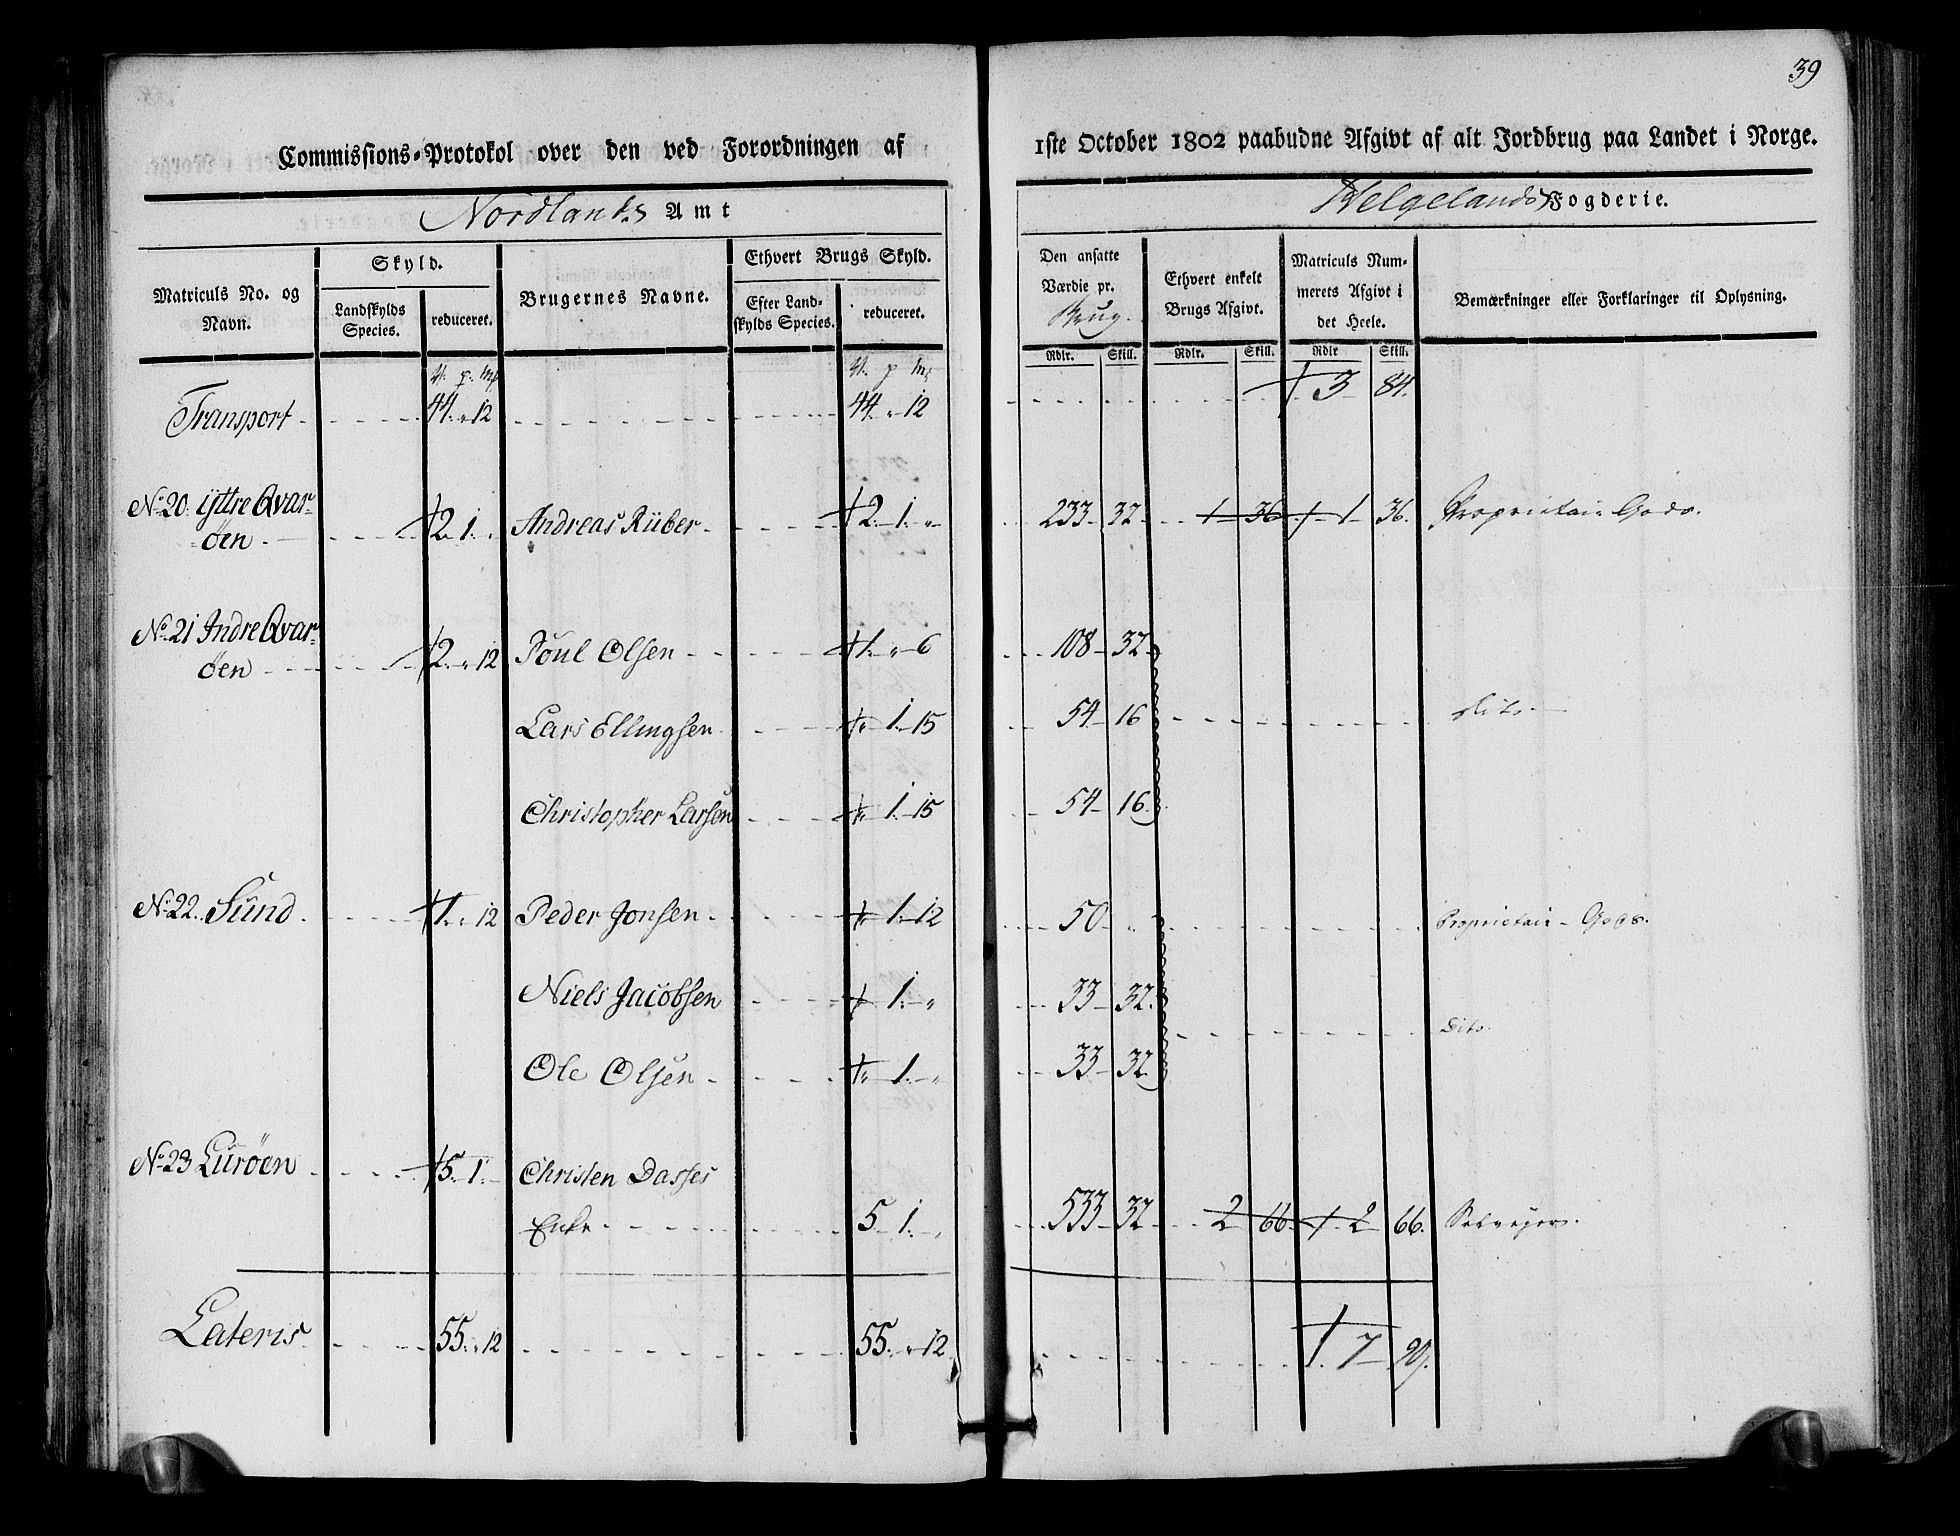 39
Commissions-Protokol over den ved Forordningen af 1ste October 1802 paabudne Afgivt af alt Jordbrug paa Landet i Norge.
Nordlands Amt
Helgelands Fogderie.
Matriculs No. og Navn.
Skyld.
Landskylds Species.
reduceret.
Brugernes Navne.
Ethvert Brugs Skyld.
Efter Landskylds Species.
reduceret.
Den ansatte Værdie pr. Brug.
Ethvert enkelt Brugs Afgivt.
Matriculs Nummerets Afgivt i det Heele.
Bemærkninger eller Forklaringer til Oplysning.
Rdlr. Skill. Rdlr. Skill. Rdlr Skill.
V. p. Mk V. p Mk
Transport 44. " 12 44. " 12 3 84.
No. 20. ÿttre Qvar-
øen 2. 1. " Andreas Rüber 2. 1. " 233 32 1 36 1 36. Proprietair Gods.
No. 21 Indre Qvar-
øen 2. " 12 Poul Olsen 1. " 6 108 32
Lars Ellingsen " 1. 15 54 16 dito
Christopher Larsen " 1. 15 54 16
No. 22. Sund 1. " 12 Peder Jonsen " 1. 12 50 " Proprietair Gods.
Niels Jacobsen 1. " 33 32.
dito.
Ole Olsen " 1. " 33 32
No. 23 Lurøen 5. 1. Christen Dasses
Enke 5. 1. " 533 32 2 66 2 66. Selveyer.
Lateris 55. " 12 55. " 12 7 90.